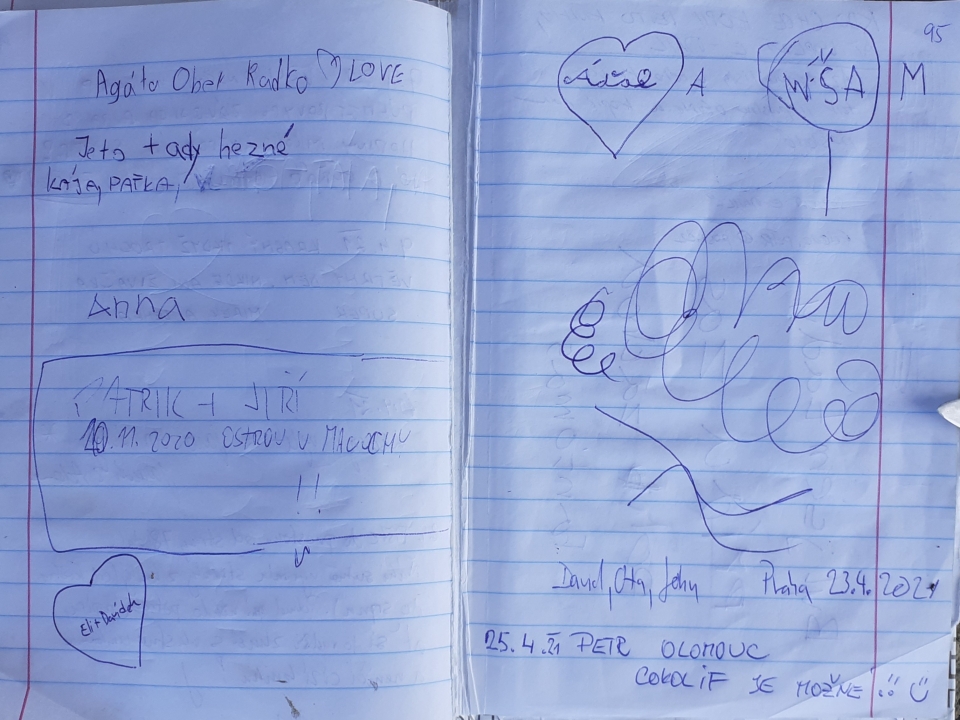 Agáta Ober Radko ♡ LOVE
Jeto tady hezné
kája, PAŤKA,
Anna
PATRIK + JIŘÍ
10.11.2020 OSTROV U MACOCHY
!!
Eli + Davídek
95
A
MÍŠA M
David, Ota, John Praha 23.4.2021
25.4.21 PETR OLOMOUC
COKOLIF JE MOŽNÉ